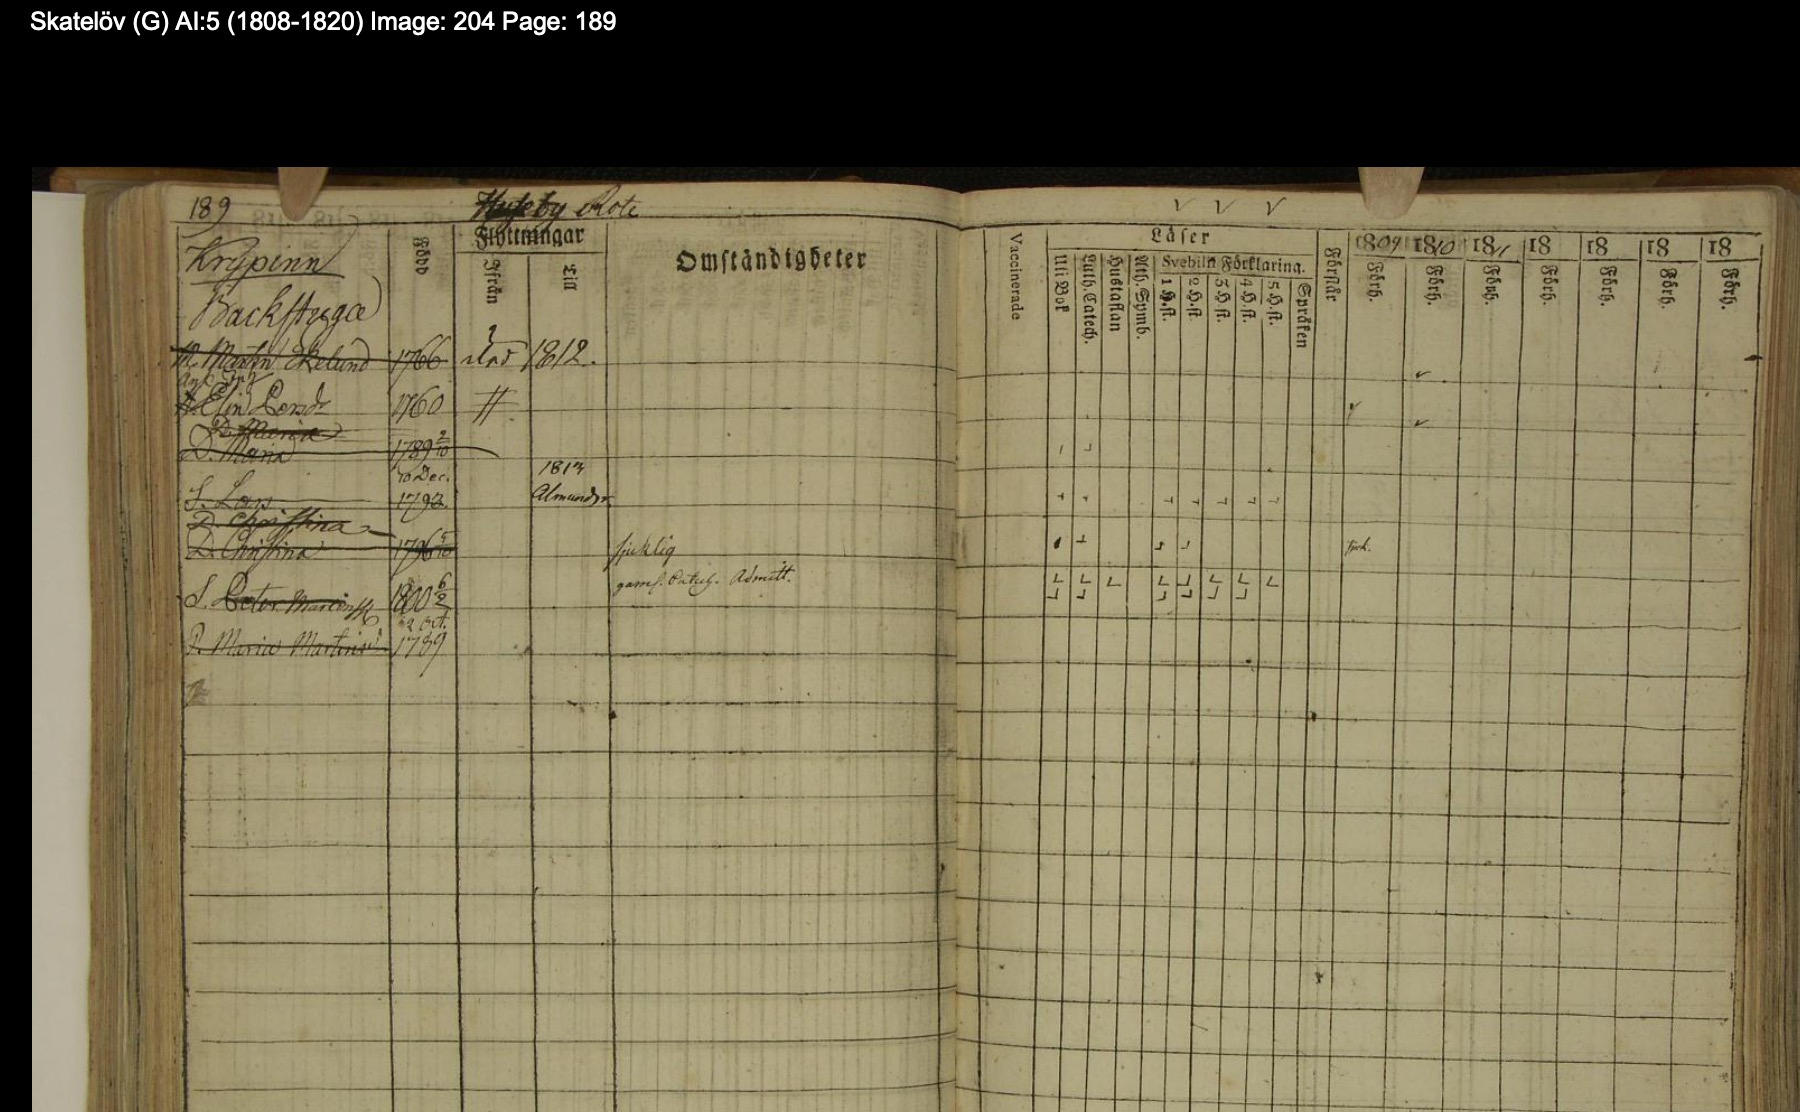 Skatelöv (G) AI:5 (1808-1820) Image: 204 Page: 189
189
Huseby Rote
Krypinn
Backstuga
Född
Flyttningar
Ifrån
Till
Omständigheter
Vaccinerade
Läser
Uti Bok
Luth. Catech.
Hustaflan
Ath. Symb.
Svebilii Förklaring.
1 H.st.
2 H.st.
3 H.st.
4 H.st.
5 H.st.
Språken
Förstår
1809 1810 1811 18 18 18 18
Förh. Förh. Förh. Förh. Förh. Förh. Förh.
M. Martin Ekelund 1766 1812.
Enk.
H. Elin Persdr 1760 //
D. Maria
D. Maria 1789 2/10
10 Dec.
S. Lars 1792
1813
Almundsr.
D. Christina
D. Christina 1796 sjuklig sjuk.
gaml. Catech. Admitt.
S. Peter Martinss 1800 6/2
2 Oct.
P. Maria Martinsd. 1789